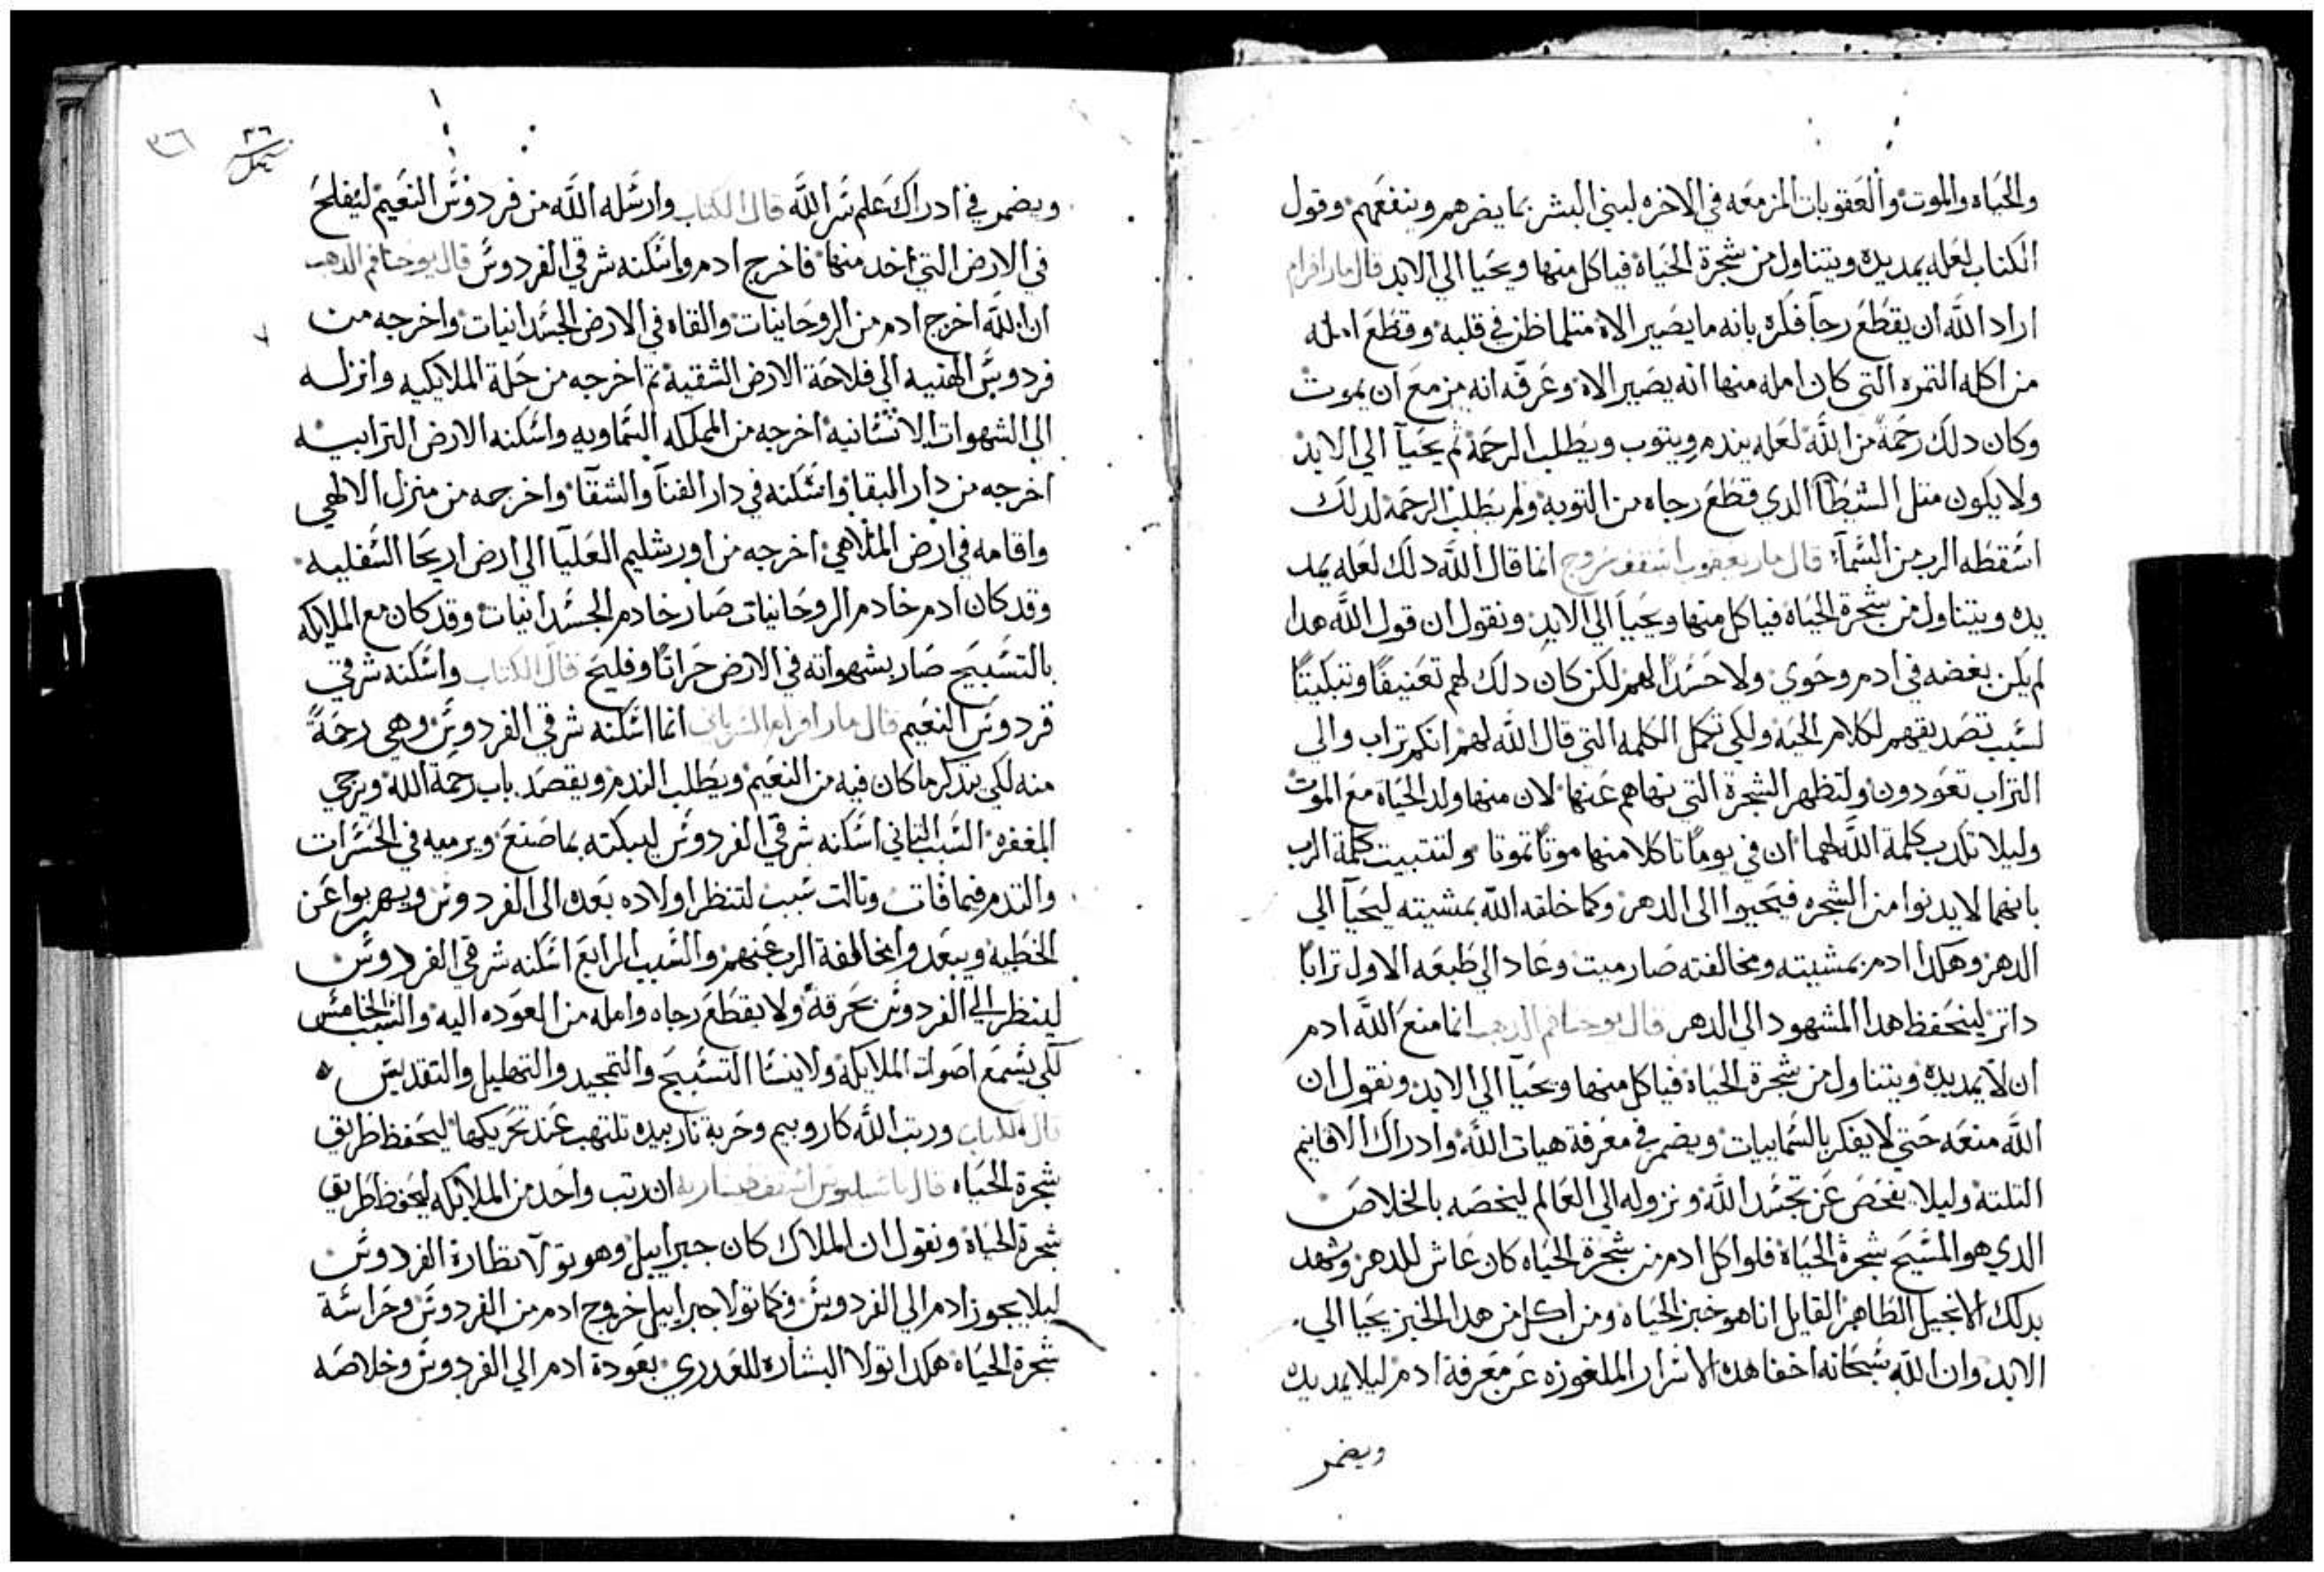 والحَياه والموت والعَقوبات المزمعَه في الاخره لبني البشر بما يضرهم وينفعَهم وقول
الكتاب لعَله يمد يده ويتناول من شجرة الحَياة فياكل منها ويحَيا الي الابد قال مار افرام
اراد اللَّه ان يقطَعَ رجآ فكره بانه ما يصَير الاه متلما ظن في قلبه وقطَعَ امله
من اكله التمره التي كان امله منها انه يصَير الاه وعَرفه انه مزمعَ ان يموت
وكان دلك رحَمة من اللَّه لعَله يندم ويتوب ويطَلب الرحَمة ثم يحَيآ الي الابد
ولا يكون متل الشيطَان الدي قطَعَ رجاه من التوبه ولم يطَلب الرحَمة لدلك
اسَقطَه الرب من السَمآء قال مار يعقوب اسقف سروج انما قال اللَّه دلك لعَله يمد
يده ويتناول من شجرة الحَياة فياكل منها ويحَيا الي الابد ونقول ان قول اللَّه هدا
لم يكن بغضه في ادم وحَوي ولا حَسَدًا لهم لكن كان دلك لهم تعَنيفًا وتبكيتًا
لسَبب تصَديقهم لكلام الحَيه ولكي تكمل الكلمه التي قال اللَّه لهم انكم تراب والي
التراب تعَودون ولتظهر الشجرة التي نهاهم عَنها لان منها ولد الحَياة معَ الموت
وليلا تكدب كلمة اللَّه لهما ان في يومًا تاكلا منها موتًا تموتا ولتتبيت كلمة الرب
بانهما لا يدنوا من الشجره فيحَيوا الي الدهر وكما خلقه اللَّه بمشيته ليحَيآ الي
الدهر وهكدا ادم بمشيته ومخالفته صَار ميت وعَاد الي طَبعَه الاول ترابًا
داتر لينحَفظ هدا المشهود الي الدهر قال يوحنا فم الدهب انما منعَ اللَّه ادم
ان لا يمد يده ويتناول من شجرة الحَياة فياكل منها ويحَيآ الي الابد ونقول ان
اللَّه منعَه حَتي لا يفكر بالسَماييات ويضمر في معَرفة هيات اللَّه وادراك الاقانيم
التلته وليلا يفحَصَ عَن تجسَد اللَّه ونزوله الي العَالم ليخصَه بالخلاصَ
الدي هو المسَيحَ شجرة الحَياة فلو اكل ادم من شجرة الحَياه كان عَاش للدهر وشهد
بدلك الانجيل الطَاهر القايل انا هو خبز الحَياه ومن اكل من هدا الخبز يحَيا الي
الابد وان اللَّه سَبحَانه اخفا هده الاسَرار الملغوزه عَن معَرفة ادم ليلا يمد يده
ويضمر
٣٦
٣٦
ويضمر في ادراك عَلم سَر اللَّه قال الكتاب وارسَله اللَّه من فردوسَ النعَيم ليفلحَ
في الارض التي اخد منها فاخرج ادم واسَكنه شرقي الفردوسَ قال يوحنا فم الدهب
ان اللَّه اخرج ادم من الروحَانيات والقاه في الارض الجسَدانيات واخرجه من
فردوسَ الهنيه الي فلاحَة الارض الشقية تم اخرجه من حَلة الملايكيه وانزله
الي الشهوات الانسَانية اخرجه من المملكه السَماويه واسَكنه الارض الترابيه
اخرجه من دار البقا واسَكنه في دار الفنآ والشقآ واخرجه من منزل الالهي
واقامه في ارض الملاهي اخرجه من اورشليم العَليآ الي ارض اريحَا السَفليه
وقد كان ادم خادم الروحَانيات صَار خادم الجسَدانيات وقد كان مع الملايكه
بالتسَبيحَ صَار بشهواته في الارض حَراتًا وفليحَ قال الكتاب واسَكنه شرقي
فردوسَ النعَيم قال مار افرام السرياني انما اسَكنه شرقي الفردوسَ وهي رحَمةً
منه لكي يتدكر ما كان فيه من النعَيم ويطَلب الندم ويقصَد باب رحَمة اللَّه ويرجي
المغفره السَبب التاني اسَكنه شرقي الفردوسَ ليبكته بما صَنعَ ويرميه في الحَسَرات
والندم فيما فات وتالت سَبب لتنظر اولاده بعَده الي الفردوسَ ويهربوا عَن
الخطَية ويبعَدوا مخالفة الرب عَنهم والسَبب الرابعَ اسَكنه شرقي الفردوسَ
لينظر الي الفردوسَ بحَرقةً ولا يقطَعَ رجاه وامله من العَوده اليه والسَبب الخامسَ
لكي يسَمعَ اصَوات الملايكة ولا ينسَا التسَبيحَ والتمجيد والتهليل والتقديسَ
قال الكتاب ورتب اللَّه كاروبيم وحَربة نار بيده تلتهب عَند تحَريكها ليحَفظ طَريق
شجرة الحَياه قال باسيليوس اسقف قيسارية ان رتب واحَد من الملايكه ليحَفظ طَريق
شجرة الحَياة ونقول ان الملاك كان جبراييل وهو تولا نظارة الفردوسَ
ليلا يجوز ادم الي الفردوسَ وكما تولا جبراييل خروج ادم من الفردوسَ وحَراسَة
شجرة الحَياه هكدا تولا البشاره للعَدري بعَودة ادم الي الفردوسَ وخلاصَه